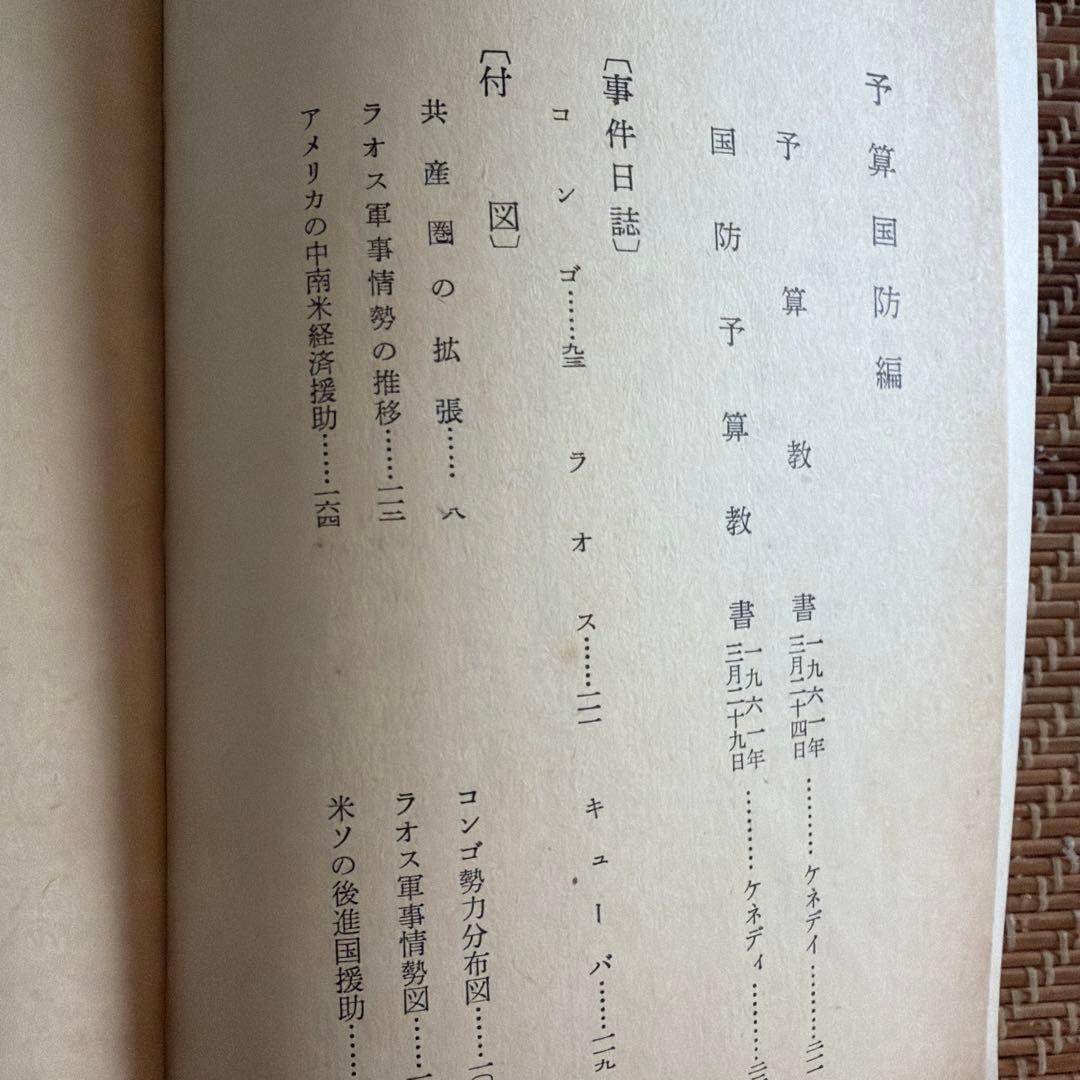 予算国防編
予算教書 一九六一年三月二十四日………ケネディ………三二一
国防予算教書 一九六一年三月二十九日………ケネディ………三
〔事件日誌〕
コンゴ……九三 ラオス……一一一 キューバ……一一九
〔付図〕
共産圏の拡張……八 コンゴ勢力分布図……一〇
ラオス軍事情勢の推移……一一二 ラオス軍事情勢図……一
アメリカの中南米経済援助……一六四 米ソの後進国援助……